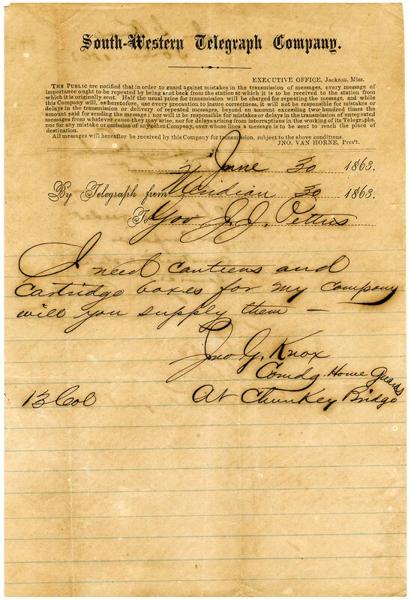 South-Western Telegraph Company.
EXECUTIVE OFFICE, Jackson, Miss.
THE PUBLIC are notified that in order to guard against mistakes in the transmission of messages, every message of
importance ought to be repeated by being sent back from the station at which it is to be received to the station from
which it is originally sent. Half the usual price for transmission will be charged for repeating the message, and while
this Company will, as heretofore, use every precaution to insure correctness, it will not be responsible for mistakes or
delays in the transmission or delivery of repeated messages, beyond an amount exceeding two hundred times the
amount paid for sending the message; nor will it be responsible for mistakes or delays in the transmission of unrepeated
messages from whatever cause they may arise, nor for delays arising from interruptions in the working of its Telegraphs,
nor for any mistake or omission of any other Company, over whose lines a message is to be sent to reach the place of
destination.
All messages will hereafter be received by this Company for transmission, subject to the above conditions.
JNO. VAN HORNE, Pres't.
June 30 1863.
By Telegraph from Meridian 30 1863.
To Gov J. J. Pettus
I need canteens and
Cartridge boxes for my company
will you supply them —
Jno G. Knox
Comdg. Home Guards
At Chunkey Bridge
13 Col